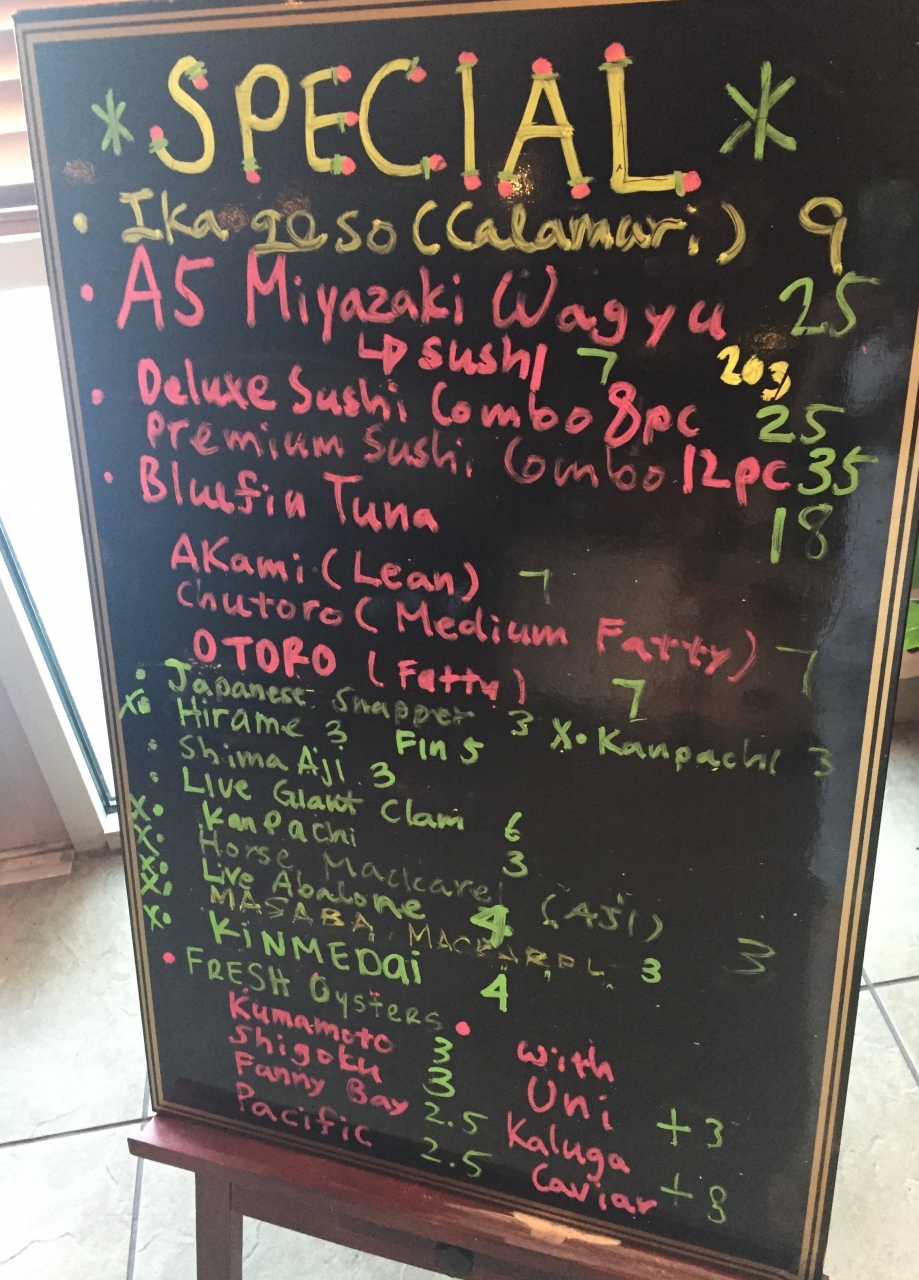 * SPECIAL *
• Ika geso (Calamari) 9
• A5 Miyazaki Wagyu 25
↳ sushi 7 2oz
• Deluxe Sushi Combo 8pc 25
Premium Sushi Combo 12pc 35
• Bluefin Tuna 18
AKami (Lean) 7
Chutoro (Medium Fatty) 7
OTORO (Fatty) 7
• Japanese Snapper 3 X• Kanpachi 3
X• Hirame 3 Fin 5
• Shima Aji 3
• Live Giant Clam 6
X• KanPachi 3
X• Horse Mackarel (AJI) 3
X• Live Abalone 4
X• MASABA MACKAREL 3
X• KiNMEDai 4
• FRESH Oysters •
Kumamoto 3 with
Shigoku 3 Uni +3
Fanny Bay 2.5 Kaluga
Pacific 2.5 Caviar +8